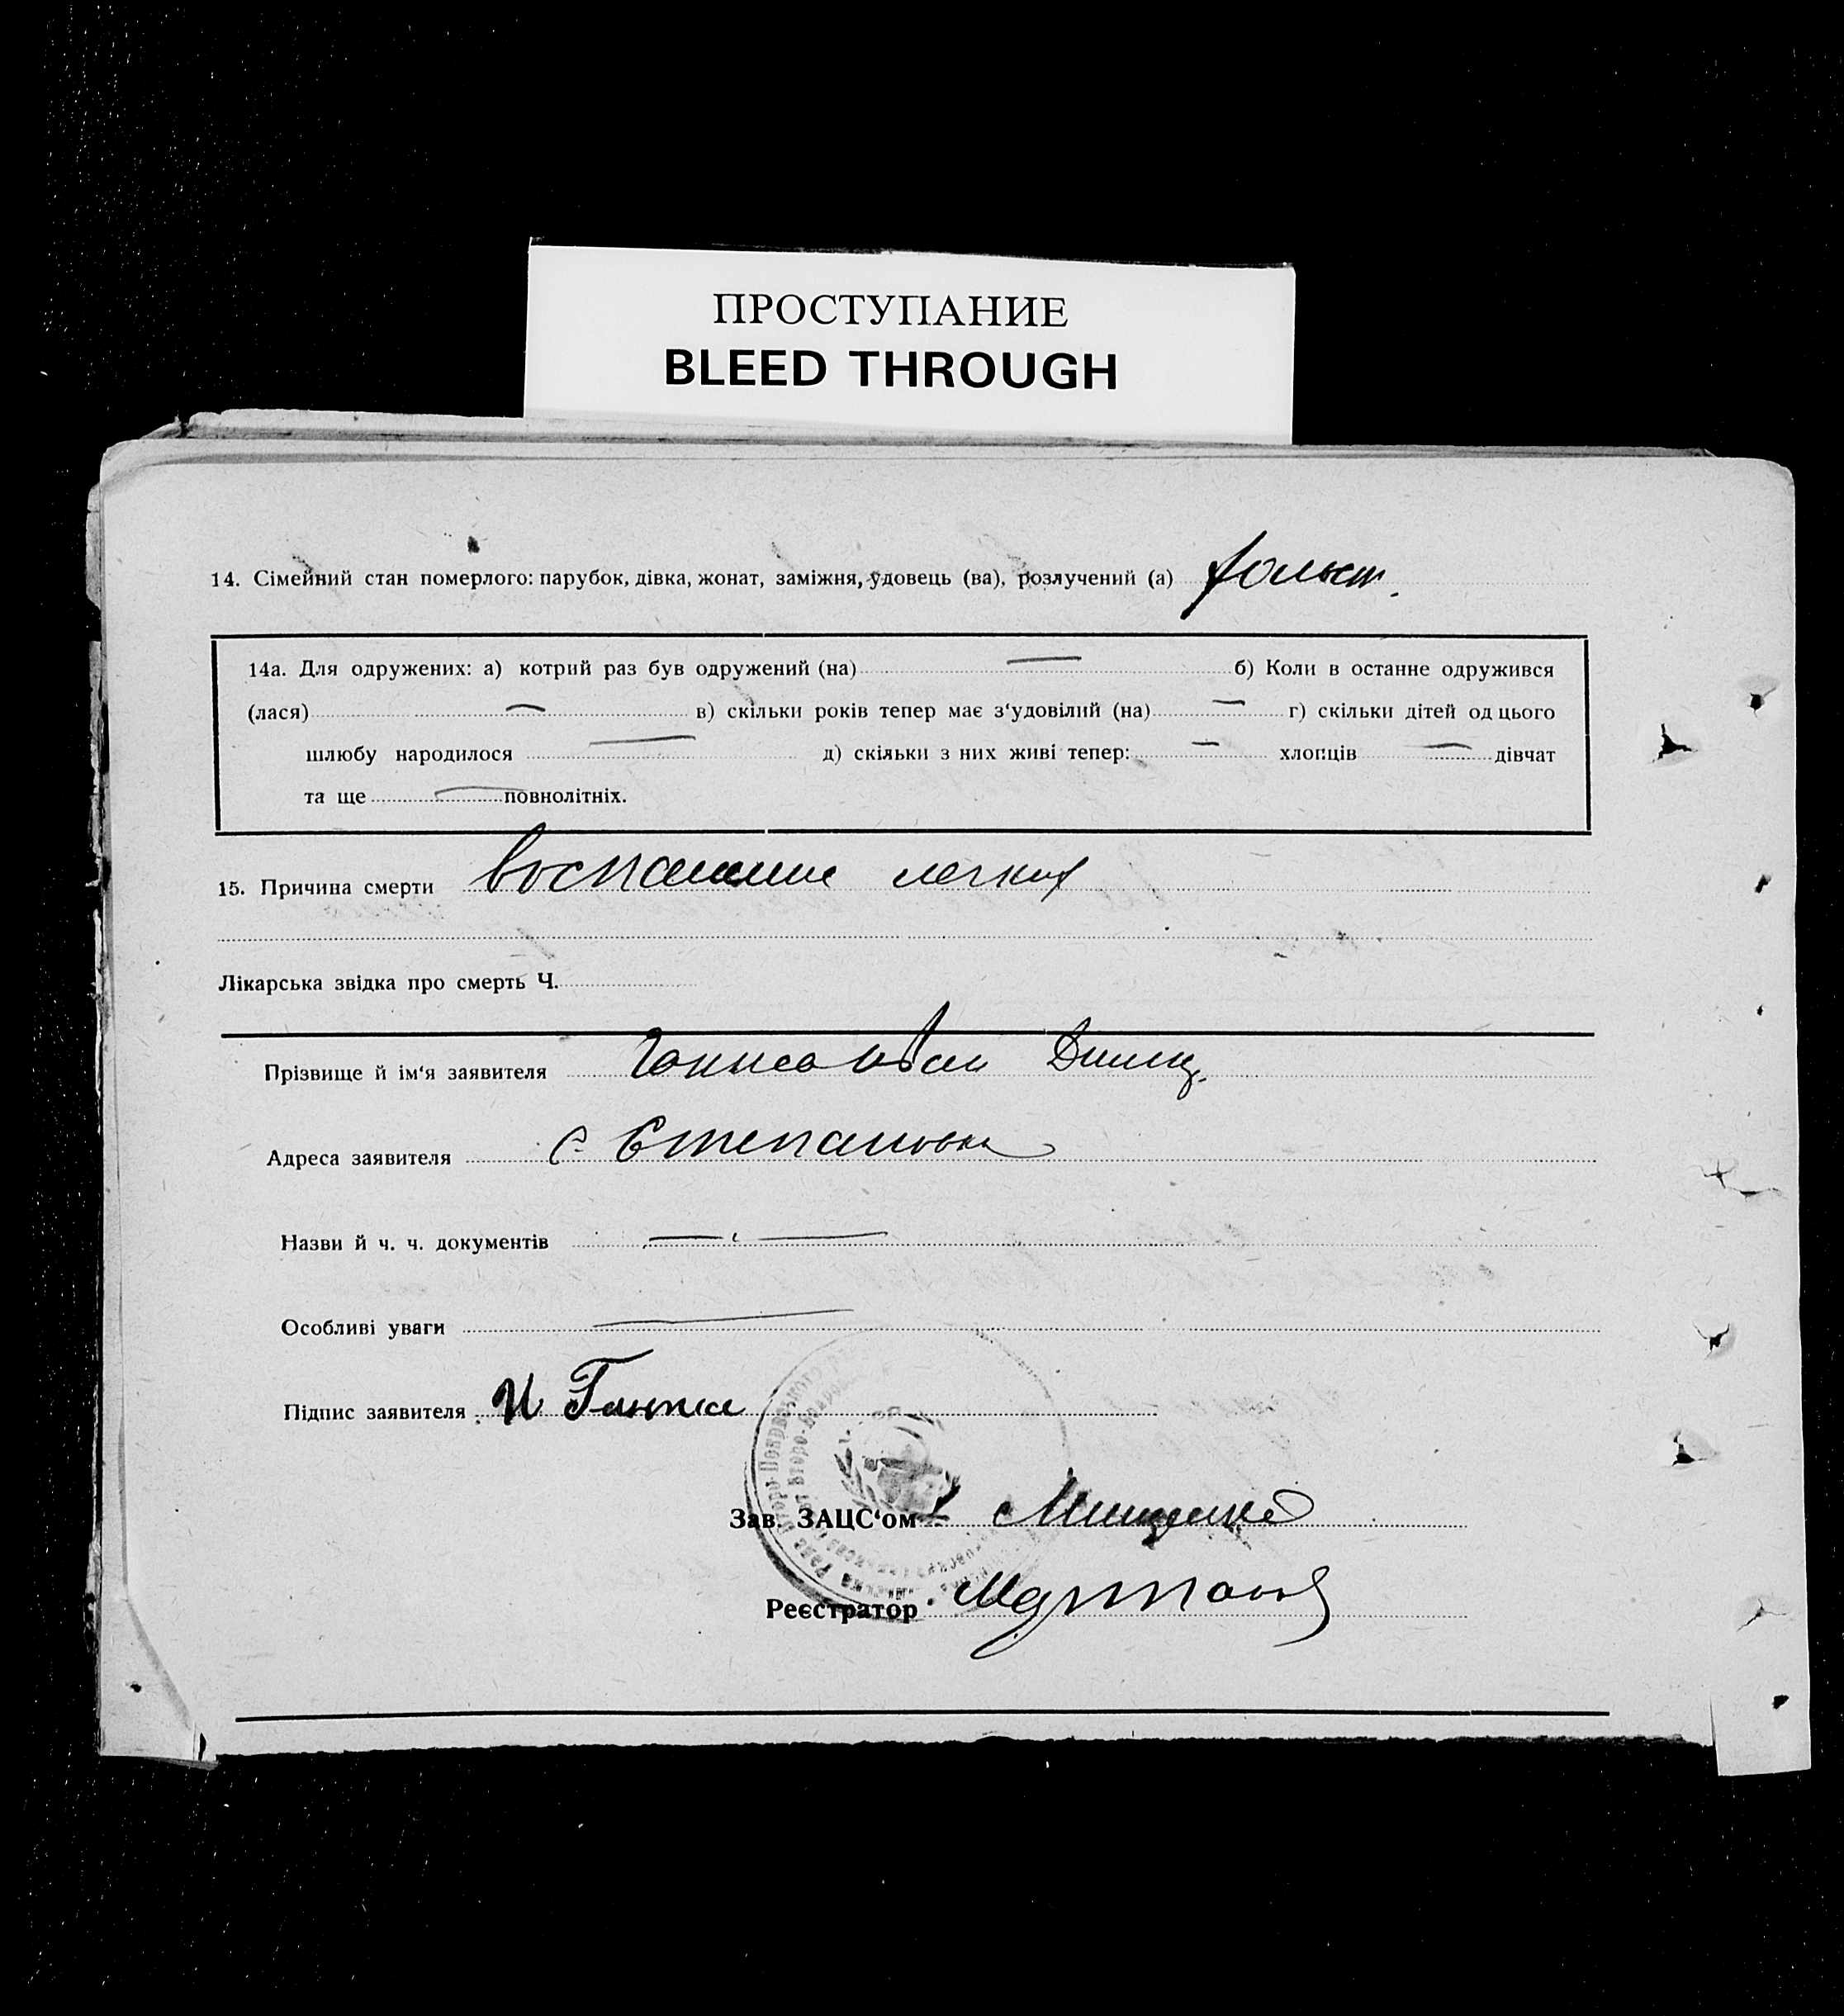 ПРОСТУПАНИЕ
BLEED THROUGH
14. Сімейний стан померлого: парубок, дівка, жонат, заміжня, удовець (ва), розлучений (а) холост.
14а. Для одружених: а) котрий раз був одружений (на) — б) Коли в останне одружився
(лася) — в) скільки років тепер має з‘удовілий (на) — г) скільки дітей од цього
шлюбу народилося — д) скільки з них живі тепер: — хлопців — дівчат
та ще — повнолітніх.
15. Причина смерти воспаление легких
Лікарська звідка про смерть Ч.
Прізвище й ім‘я заявителя Ганжа Иван
Адреса заявителя с. Степановка
Назви й ч. ч. документів —
Особливі уваги —
Підпис заявителя И Ганжа
Зав. ЗАЦС‘ом Мищенко
Реєстратор